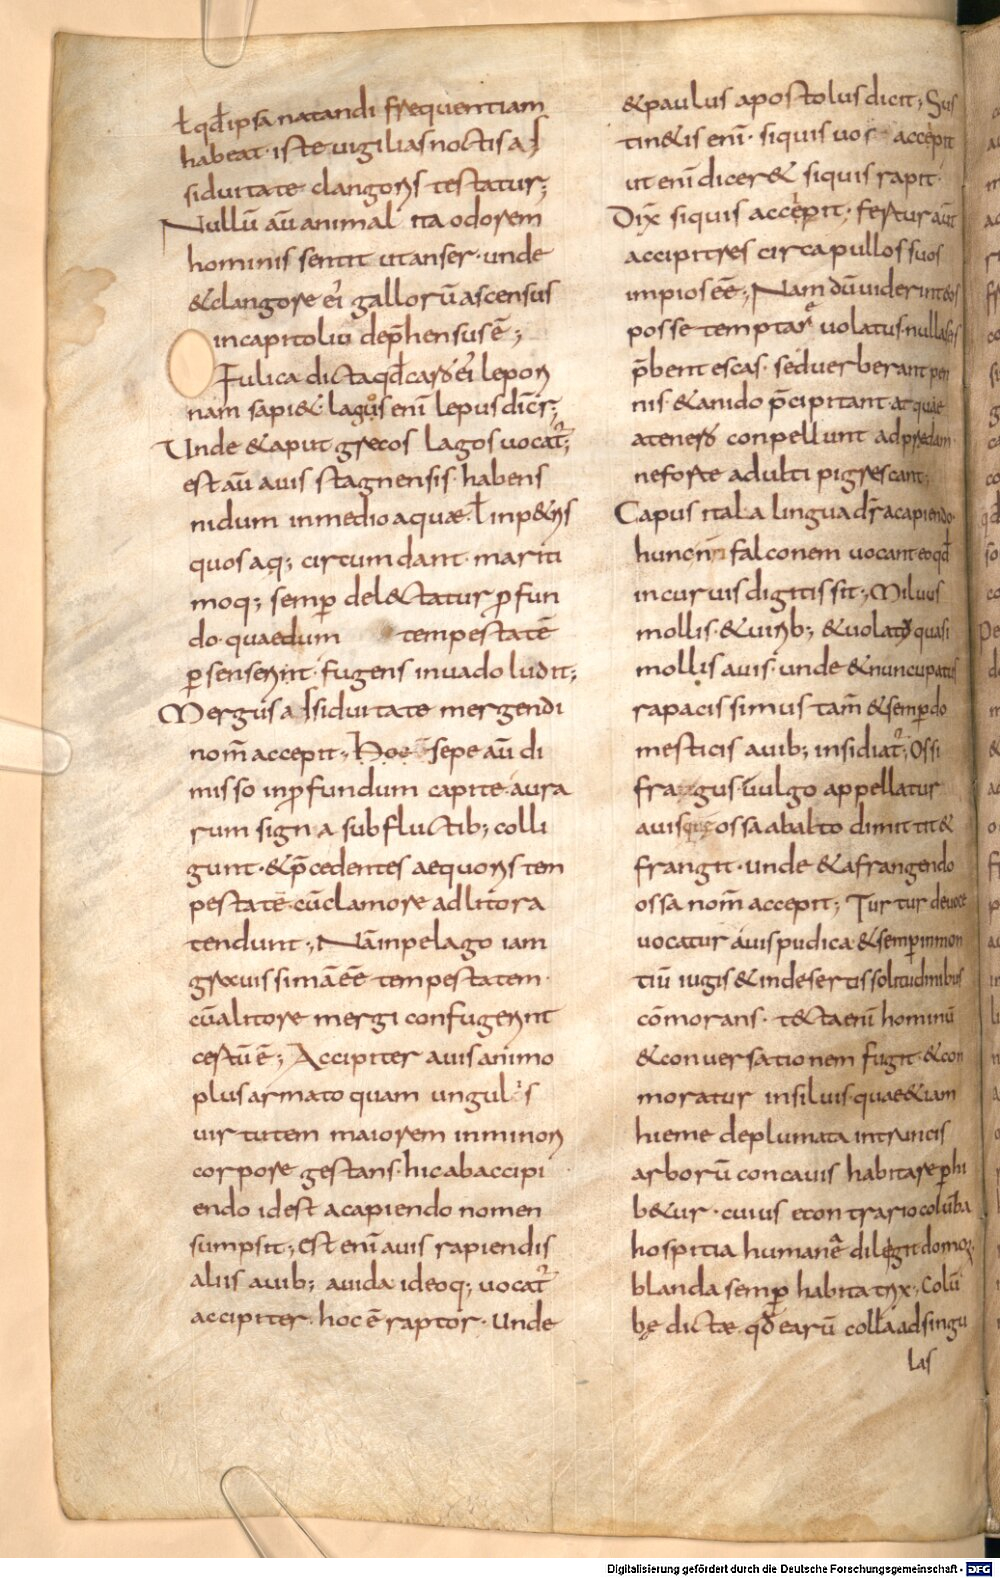 ł qđ ipsa natandi frequentiam
habeat · iste uigilias noctis as
siduitate clangoris testatur;
Nullū aū animal ita odorem
hominis sentit ut anser · unde
& clangore ei gallorū ascensus
in capitolio dep̄hensus ē;
Fulica dicta qđ caro ei leporī
nam sapi& lagos enī lepus dicit̄;
Unde & aput grecos lagos uocat̄;
est aū auis stagnensis · habens
nidum in medio aquae · ł in p&ris
quos aq; circumdant · mariti
moq; semp̄ del&ctatur p̱fun
do · quaedum tempestatē
p̱senserit · fugens in uado ludit;
Mergus assiduitate mergendi
nom̄ accepit; Hoc sepe aū di
misso in p̱fundum capite · aura
rum signa sub fluctib; colli
gunt · & p̄cedentes aequoris tem
pestatē cū clamore ad littora
tendunt; Nā in pelago iam
grauissimā eē tempestatem ·
cū ad litore mergi confugerint
cestū ē; Accipiter auis animo
plus armato quam ungulis
uirtutem maiorem in minori
corpore gestans · hic ab accipi
endo id est a capiendo nomen
sumpsit; est enī auis rapiendis
aliis auib; auida ideoq; uocat̄
accipiter · hoc ē raptor · Unde
& paulus apostolus dicit; Sus
tin&is enī · siquis uos accepit
ut enī dicer& siquis rapit ·
Dix̄ siquis accepit; fertur aūt
accipitres circa pullos suos
impios eē; Nam dū uiderint eos
posse temptare uolatus · nullas
p̄bent escas · sed uerberant pen
nis & a nido p̄cipitant atquae
a tenero conpellunt ad predam ·
ne forte adulti pigrescant;
Capus itala lingua dr̄ a capiendo
hunc n falconem uocant eo qđ
incuruis digitis sit; Miluus
mollis & uirib; & uolatu quasi
mollis auis · unde & nuncupatus
rapacissimus tam̄ & semp̱ do
mesticis auib; insidiat̄; Ossi
fragus uulgo appellatur
auis que ossa ab alto dimittit &
frangit · unde & a frangendo
ossa nom̄ accepit; Turtur de uoce
uocatur auis pudica & semp̱ in mon
tiū iugis & in desertis solitudinibus
cōmorans · t&cta enī hominū
& conuersationem fugit & con
moratur in siluis · quae &iam
hieme deplumata in truncis
arborū concauis habitare p̱hi
b&ur · cuius econtrario colūba
hospitia humane dilegit domoꝝ
blanda semp̱ habitatrix · Colū
bę dictæ qđ earū colla ad singu
las
Digitalisierung gefördert durch die Deutsche Forschungsgemeinschaft - DFG